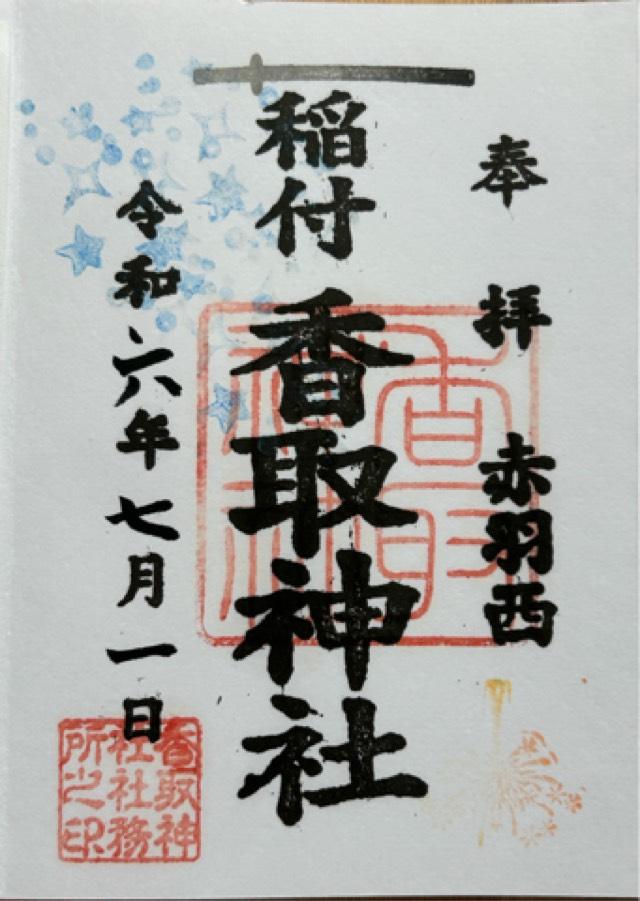 奉拝
赤羽西
稲付
香取神社
令和六年七月一日
香取神社
香取神
社社務
所之印